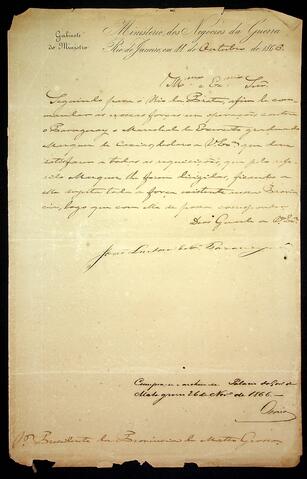 Gabinete
do Ministro
Ministerio dos Negocios da Guerra
Rio de Janeiro, em 11 de Outubro de 1866.
Ill.mo e Ex.mo Snr.
Seguindo para o Rio da Prata, afim de com-
mandar as nossas forças em operações contra
o Paraguay, o Marechal do Exercito graduado
Marquez de Caxias, V. Ex.a
satisfará a todas as requisições, que pelo refe-
rido Marquez lhe forem dirigidas, ficando a
toda a força existente nessa Provin-
cia, logo que com ella se possa corresponder.
Deos Guarde a V. Ex.a
João Lustosa da Cunha Paranaguá
Cumpra-se e archive-se. Palacio do Gov. de
Mato grosso 26 de Nov.o de 1866.
Snr. Presidente da Provincia de Matto Grosso